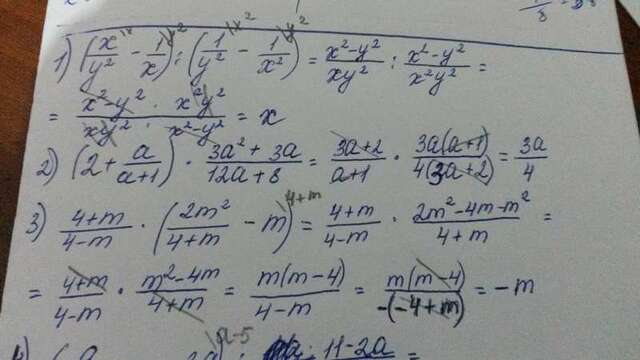 1) (x/y² - 1/x) : (1/y² - 1/x²) = (x²-y²)/(xy²) : (x²-y²)/(x²y²) =
= (x²-y²)/(xy²) · (x²y²)/(x²-y²) = x
2) (2 + a/(a+1)) · (3a²+3a)/(12a+8) = (3a+2)/(a+1) · (3a(a+1))/(4(3a+2)) = 3a/4
3) (4+m)/(4-m) · (2m²/(4+m) - m) = (4+m)/(4-m) · (2m²-4m-m²)/(4+m) =
= (4+m)/(4-m) · (m²-4m)/(4+m) = (m(m-4))/(4-m) = (m(m-4))/(-(-4+m)) = -m